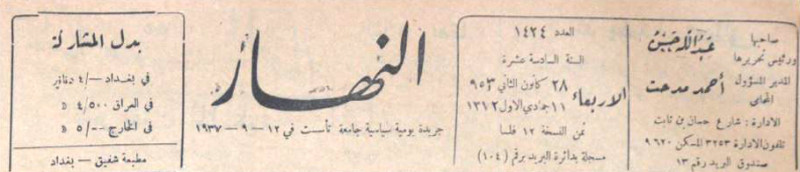 صاحبها
ورئيس تحريرها
عبدالله حسن
المدير المسؤول
المحامي
أحمد مدحت
الادارة : شارع حسان بن ثابت
تلفون الادارة ٣٢٥٣ المسكن ٩٦٢٠
صندوق البريد رقم ١٣
العدد ١٤٢٤
السنة السادسة عشرة
الاربعاء
٢٨ كانون الثاني ٩٥٣
١١ جمادي الاول ١٣١٢
ثمن النسخة ١٢ فلسا
مسجلة بدائرة البريد برقم (١٠٤)
النهار
جريدة يومية سياسية جامعة تأسست في ١٢ - ٩ - ١٩٣٧
بدل المشاركة
في بغداد -/٤ دنانير
في العراق ٤/٥٠٠ D
في الخارج ٥/-- D
مطبعة شفيق - بغداد